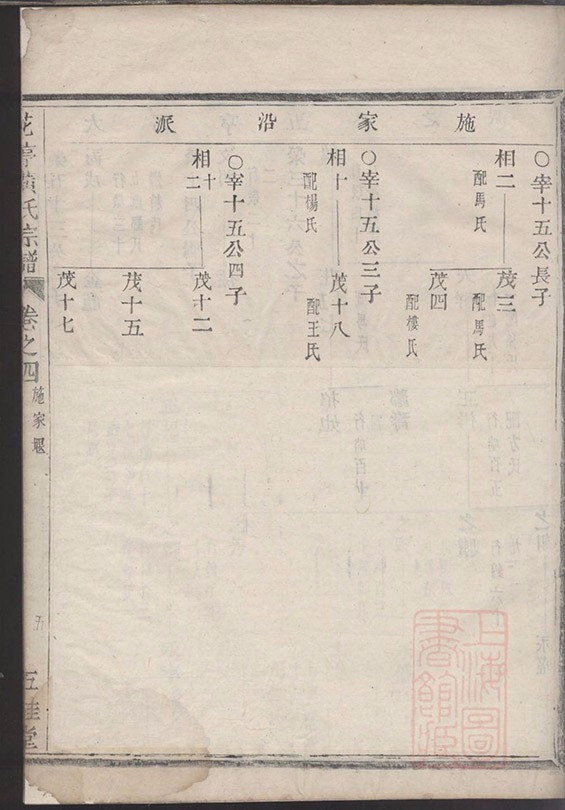 施家沿派
○宰十五公長子
相二
配馬氏
茂三
配馬氏
茂四
配樓氏
○宰十五公三子
相十
配楊氏
茂十八
配王氏
○宰十五公四子
相十二
茂十二
茂十五
茂十七
花亭黃氏宗譜
卷之四
施家堰
五
五桂堂
上海圖書館藏